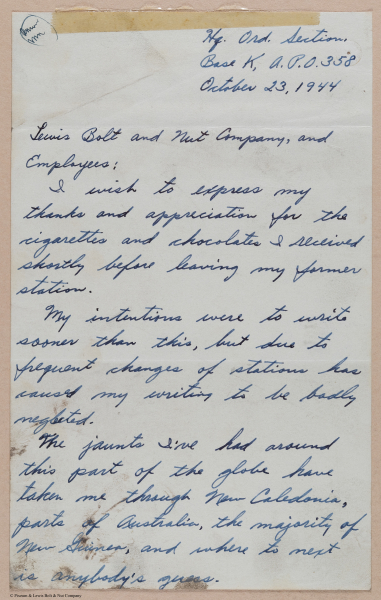 Hq. Ord. Section.
Base K, A.P.O. 358
October 23, 1944
Lewis Bolt and Nut Company, and
Employees:
I wish to express my
thanks and appreciation for the
cigarettes and chocolates I received
shortly before leaving my former
station.
My intentions were to write
sooner than this, but due to
frequent changes of stations has
caused my writing to be badly
negleted.
The jaunts I've had around
this part of the globe have
taken me through New Caledonia,
parts of Australia, the majority of
New Guinea, and where to next
is anybody's guess.
© Pioneer & Lewis Bolt & Nut Company